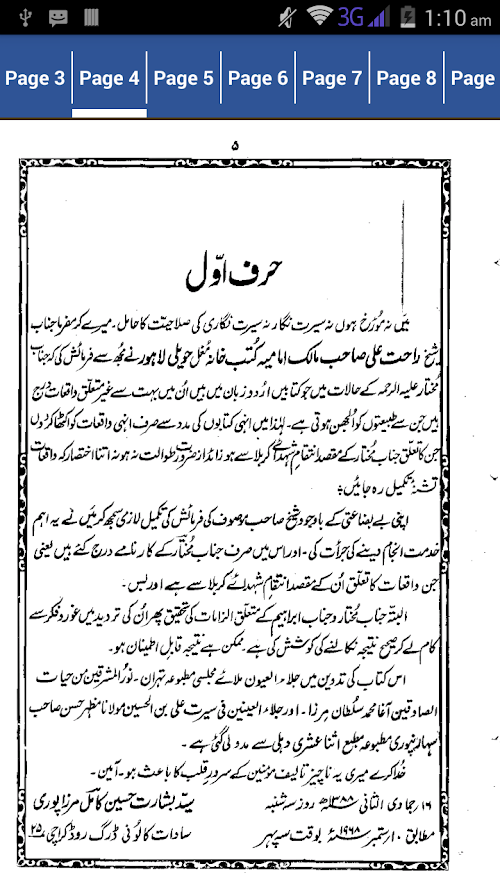 3G 1:10 am
Page 3 Page 4 Page 5 Page 6 Page 7 Page 8 Page
۵
حرفِ اوّل
میں نہ مؤرخ ہوں نہ سیرت نگار نہ سیرت نگاری کی صلاحیت کا حامل۔ میرے کرمفرما جناب
شیخ راحت علی صاحب مالک امامیہ کُتب خانہ مُغل حویلی لاہور نے مجھ سے فرمائش کی کہ جناب
مُختار علیہ الرحمہ کے حالات میں جو کتابیں اُردو زبان میں ہیں اُن میں بہت سے غیر متعلق واقعات درج
ہیں جن سے طبیعتوں کو اُلجھن ہوتی ہے۔ لہٰذا میں انہی کتابوں کی مدد سے صرف انہی واقعات کو اکٹھا کر دوں
جن کا تعلق جناب مُختار کے مقصد انتقامِ شہدائے کربلا سے ہو زائد از ضرورت طوالت نہ ہو نہ اتنا اختصار کہ واقعات
تشنۂ تکمیل رہ جائیں؛
اپنی بے بضاعتی کے باوجود شیخ صاحب موصوف کی فرمائش کی تکمیل لازمی سمجھ کر میں نے یہ اہم
خدمت انجام دینے کی جرأت کی۔ اور اس میں صرف جناب مُختار کے کارنامے درج کئے ہیں یعنی
جن واقعات کا تعلق اُن کے مقصد انتقامِ شہدائے کربلا سے ہے اور بس۔
البتہ جناب مُختار و جناب ابراہیم کے متعلق الزامات کی تحقیق پھر اُن کی تردید میں غور و فکر سے
کام لے کر صحیح نتیجہ نکالنے کی کوشش کی ہے۔ ممکن ہے نتیجہ قابلِ اطمینان ہو۔
اس کتاب کی تدوین میں جلاء العیون ملائے مجلسی مطبوعہ تہران۔ نورُ المشرقین من حیات
الصادقین آغا محمد سُلطان مرزا۔ اور جلاء العینین فی سیرت علی بن الحسین مولانا مظہر حسن صاحب
سہارنپوری مطبوعہ مطبع اثنا عشری دہلی سے مدد لی گئی ہے۔
خُدا کرے میری یہ ناچیز تالیف مؤمنین کے سرورِ قلب کا باعث ہو۔ آمین۔
۱۶ جمادی الثانی ۱۳۸۸ھ روز سہ شنبہ سیّد بشارت حسین کامل مرزا پوری
مطابق ۱۰ ستمبر ۱۹۶۸ء بوقت سہ پہر ۲۵ سادات کالونی ڈرگ روڈ کراچی